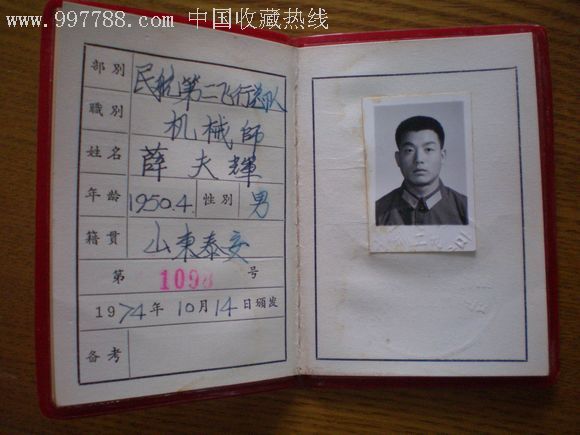 www.997788.com 中国收藏热线
部别 民航第二飞行总队
職别 机械師
姓名 薛夫輝
年龄 1950.4 性别 男
籍贯 山東泰安
第 1098 号
1974年10月14日頒发
备考